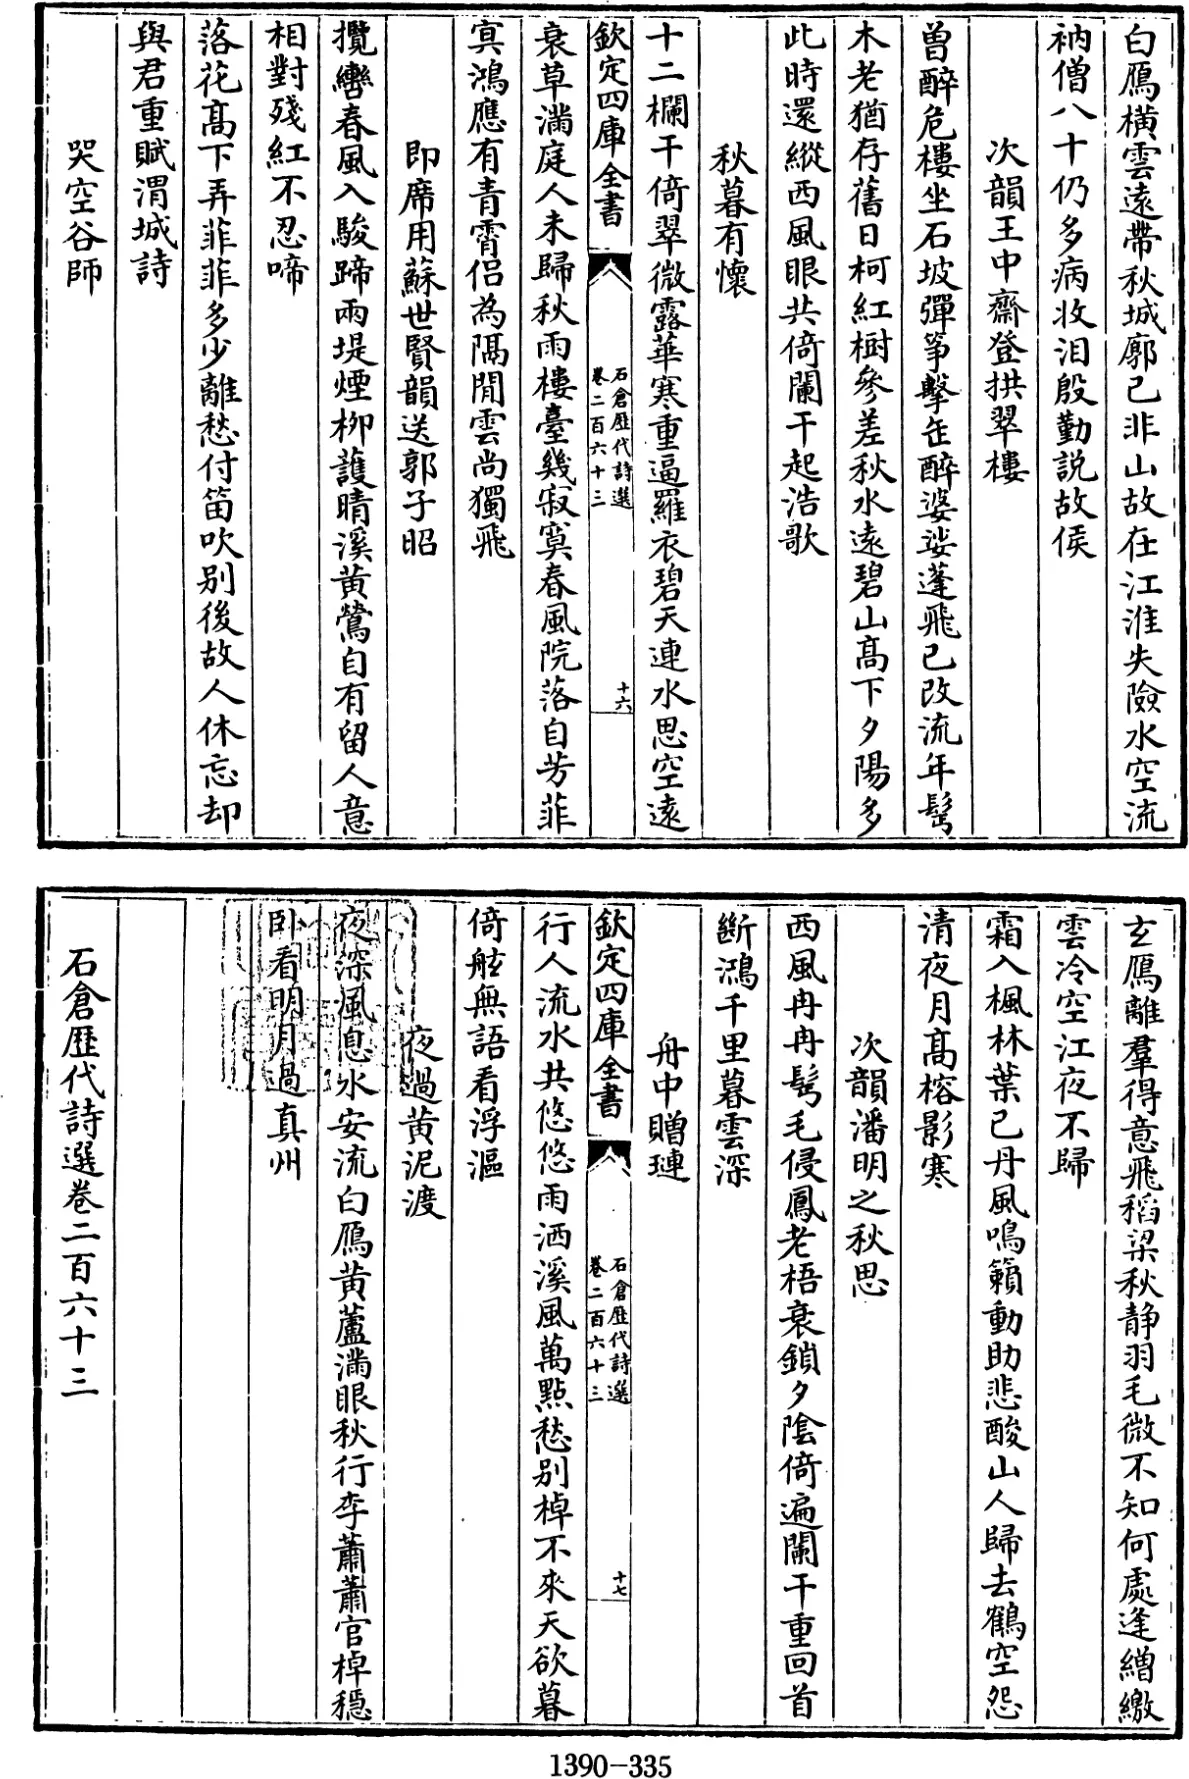 白鴈橫雲遠帶秋城廓已非山故在江淮失險水空流
衲僧八十仍多病收泪殷勤說故侯
次韻王中齋登拱翠樓
曽醉危樓坐石坡彈筝擊缶醉婆娑蓬飛已改流年髩
木老猶存舊日柯紅樹參差秋水遠碧山髙下夕陽多
此時還縱西風眼共倚闌干起浩歌
秋暮有懷
十二欄干倚翠微露華寒重逼羅衣碧天連水思空遠
欽定四庫全書
石倉歴代詩選
卷二百六十三
十六
衰草滿庭人未歸秋雨樓臺幾寂寞春風院落自芳菲
寘鴻應有青霄侣為隔閒雲尚獨飛
即席用蘇世賢韻送郭子昭
攬轡春風入駿蹄兩堤煙栁護晴溪黄鶯自有留人意
相對殘紅不忍啼
落花髙下弄菲菲多少離愁付笛吹别後故人休忘却
與君重賦渭城詩
哭空谷師
玄鴈離羣得意飛稻梁秋静羽毛微不知何處逢繒繳
雲冷空江夜不歸
霜入楓林葉已丹風鳴籟動助悲酸山人歸去鶴空怨
清夜月髙榕影寒
次韻潘明之秋思
西風冉冉髩毛侵鳳老梧衰鎖夕陰倚遍闌干重回首
斷鴻千里暮雲深
舟中贈璉
欽定四庫全書
石倉歴代詩選
卷二百六十三
十七
行人流水共悠悠雨洒溪風萬點愁别棹不來天欲暮
倚舷無語看浮漚
夜過黄泥渡
夜深風息水安流白鴈黄蘆滿眼秋行李蕭蕭官棹穩
卧看明月過真州
石倉歴代詩選卷二百六十三
1390-335